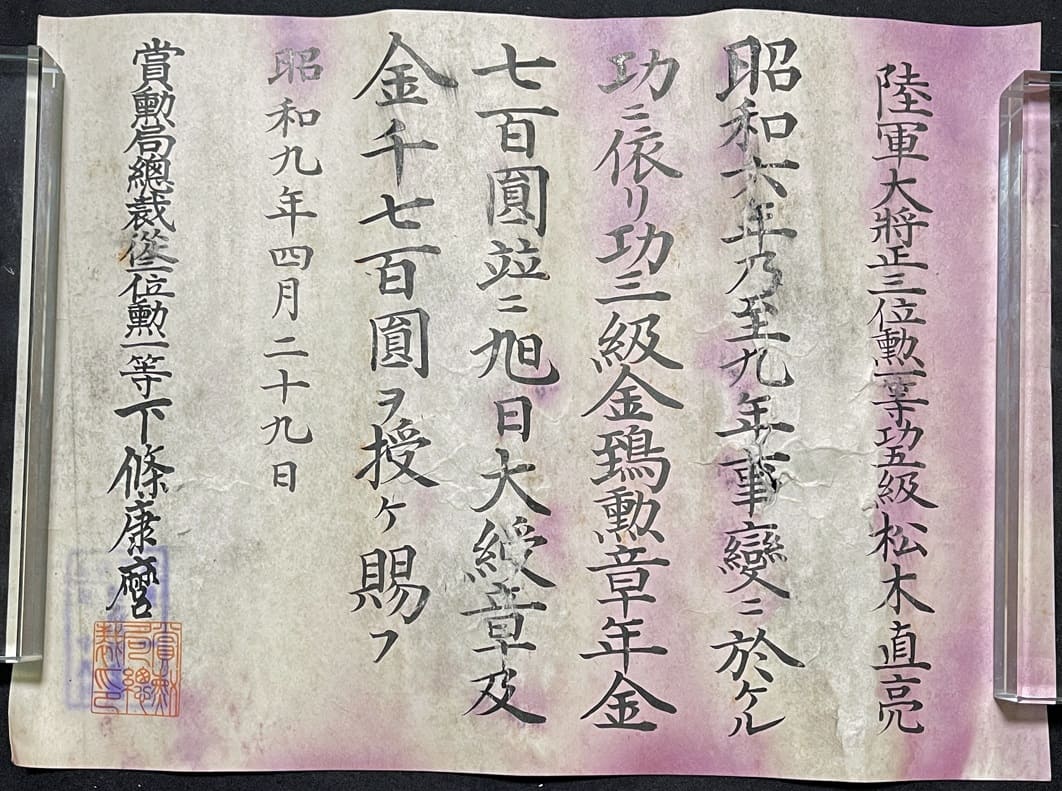 陸軍大將正三位勲一等功五級松木直亮
昭和六年乃至九年事變ニ於ケル
功ニ依リ功三級金鵄勲章年金
七百圓竝ニ旭日大綬章及
金千七百圓ヲ授ケ賜フ
昭和九年四月二十九日
賞勲局總裁從二位勲一等下條康麿
賞勲局總裁之印